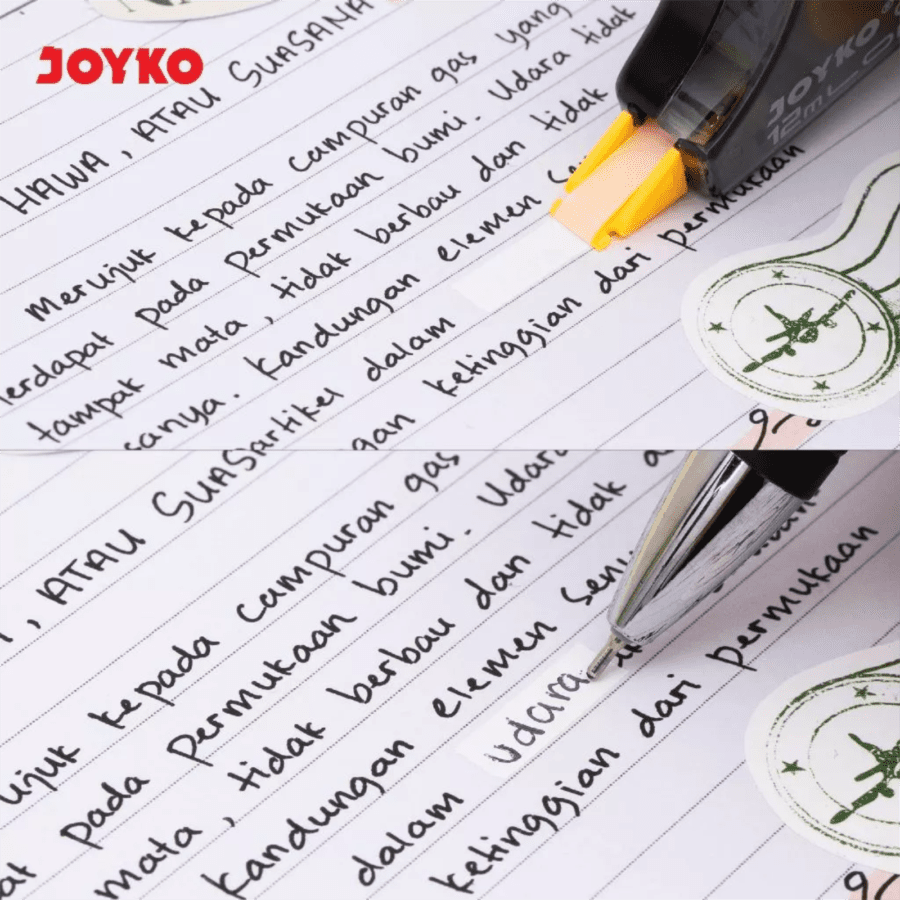 JOYKO
HAWA, ATAU SUASANA
Merujuk kepada campuran gas yang
terdapat pada permukaan bumi. Udara tidak
tampak mata, tidak berbau dan tidak
kandungan elemen
SUASartikel dalam
ketinggian dari permukaan
JOYKO
12m
, ATAU SUAS
ujuk kepada campuran gas
at pada permukaan bumi. Udara
mata, tidak berbau dan tidak
kandungan elemen
dalam udara
ketinggian dari permukaan